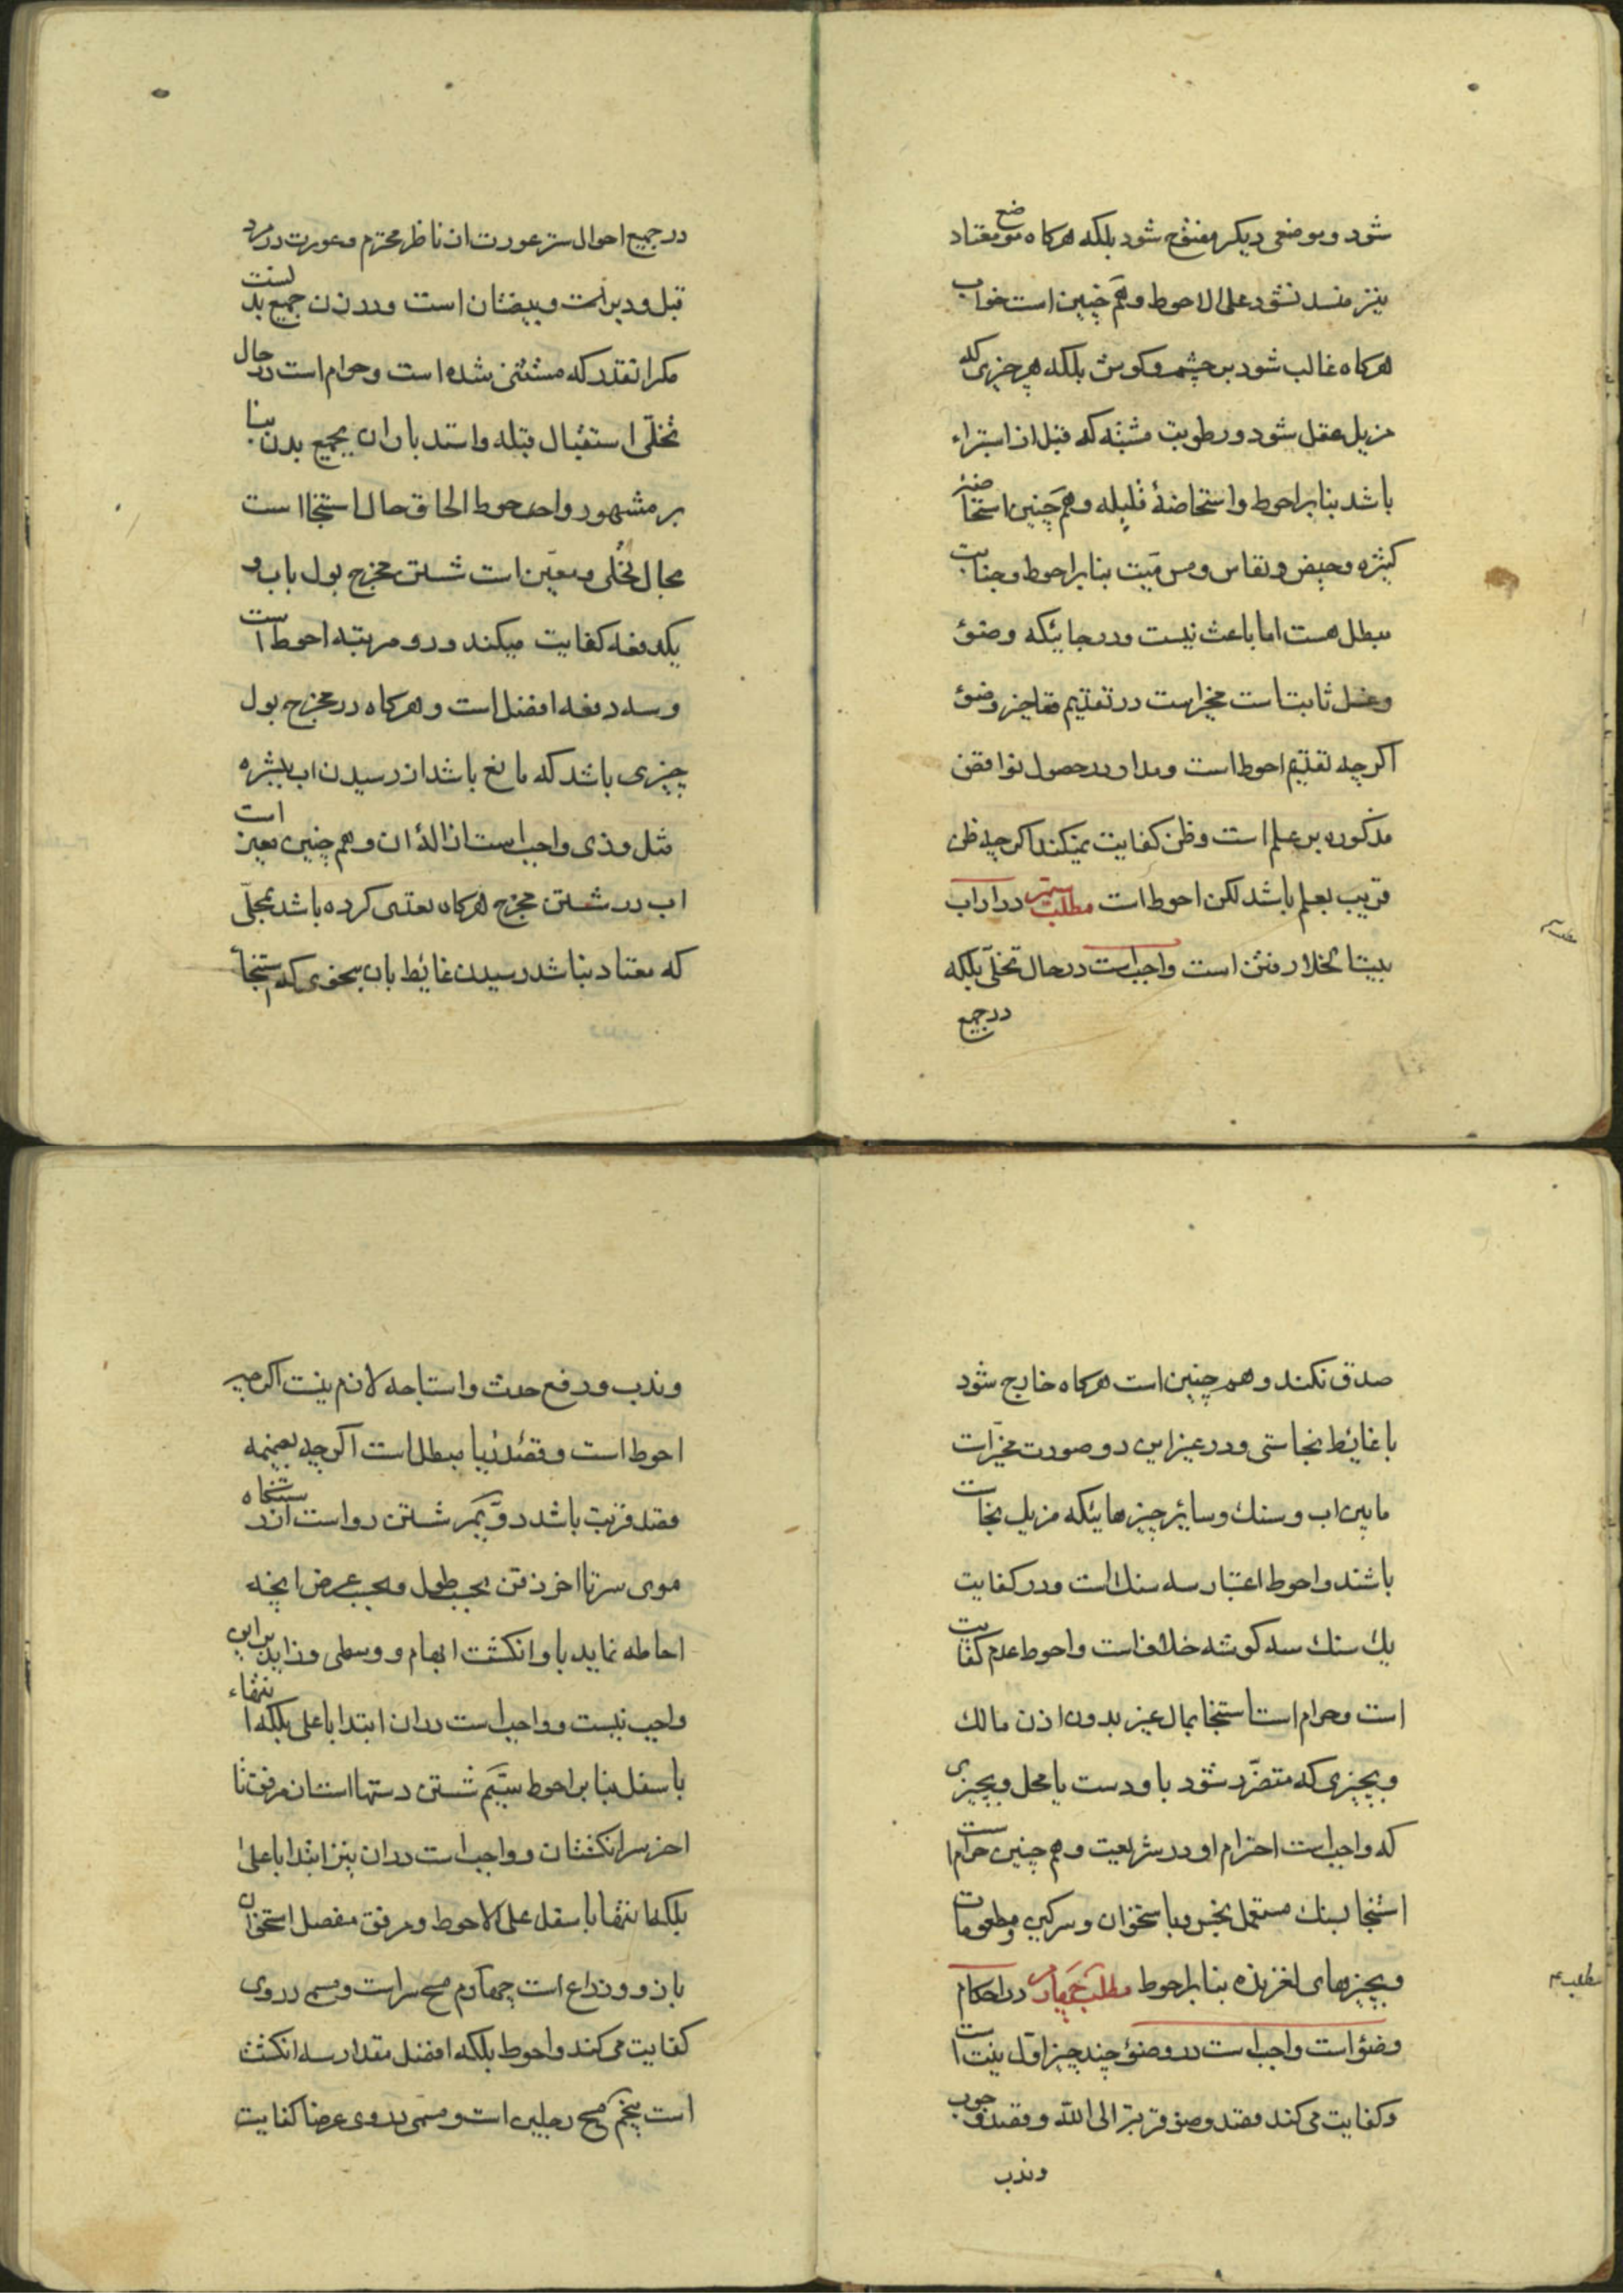 شود و بوضعی دیکر مفتوح شود بلکه هرکاه موضع معتاد
نیز منسد نشود علی الاحوط و هم چنین است خواب
هرکاه غالب شود بر چشم و کوش بلکه هر چیزی که
مزیل عقل شود و رطوبت مشتبه که قبل از استبراء
باشد بنا بر احوط و استحاضهٔ قلیله و هم چنین استحاضهٔ
کثیره و حیض و نفاس و مس میّت بنا بر احوط و جنابت
مبطل هست اما باعث نیست و در جائیکه وضوء
و غسل ثابت است مخیر است در تقدیم و تاخیر وضوء
اکرچه تقدیم احوط است و مدار در حصول نواقض
مذکوره بر علم است و ظن کفایت نمیکند اکرچه ظن
قریب بعلم باشد لکن احوط است مطلب سیّم در اداب
بیت الخلا رفتن است واجب است در حال تخلّی بلکه
در جمیع
در جمیع احوال ستر عورت از ناظر محترم و عورت در مرد
قبل و دبر است و بیضتان است و در زن جمیع بدنست
مکر انقدر که مستثنی شده است و حرام است در حال
تخلّی استقبال قبله و استدبار ان بجمیع بدن بنا
بر مشهور و احوط الحاق حال استنجا است
بحال تخلّی و معیّن است شستن مخرج بول باب و
یکدفعه کفایت میکند و دو مرتبه احوط است
و سه دفعه افضل است و هرکاه در مخرج بول
چیزی باشد که مانع باشد از رسیدن اب ببشره
مثل وذی واجب است ازالهٔ ان و هم چنین معین است
اب در شستن مخرج هرکاه تعدی کرده باشد بمحلّی
که معتاد نباشد رسیدن غایط بان بنحوی که استنجا
صدق نکند و هم چنین است هرکاه خارج شود
با غایط نجاستی و در غیر این دو صورت مخیّر است
مابین اب و سنك و سایر چیزهائیکه مزیل نجاست
باشند و احوط اعتبار سه سنك است و در کفایت
یك سنك سه کوشه خلاف است و احوط عدم کفایت
است و حرام است استنجا بمال غیر بدون اذن مالك
و بچیزی که متضرّر شود باو دست یا محل و بچیزی
که واجب است احترام او در شریعت و هم چنین حرام است
استنجا بسنك مستعمل نجس و باستخوان و سرکین و مطعومات
و بچیزهای لغزنده بنا بر احوط مطلب چهارم در احکام
وضوء است واجب است در وضوء چند چیز اوّل نیت است
و کفایت می کند قصد وضو قربة الی الله و قصد وجوب
و ندب
و ندب و رفع حدث و استباحه لازم نیست اکرچه
احوط است و قصد ریا مبطل است اکرچه بضمیمه
قصد قربت باشد دوّیم شستن رو است از رستنکاه
موی سر تا اخر ذقن بحسب طول و بحسب عرض انچه
احاطه نماید باو انکشت ابهام و وسطی و زاید بر این
واجب نیست و واجب است در ان ابتدا باعلی بلکه انتهاء
باسفل بنا بر احوط سیّیم شستن دستها است از مرفق تا
اخر سر انکشتان و واجب است در ان نیز ابتدا باعلی
بلکه انتها باسفل علی الاحوط و مرفق مفصل استخوان
بازو و ذراع است چهارم مسح سر است و مسمی در وی
کفایت می کند و احوط بلکه افضل مقدار سه انکشت
است پنجم مسح رجلین است و مسمّی در وی عرضا کفایت